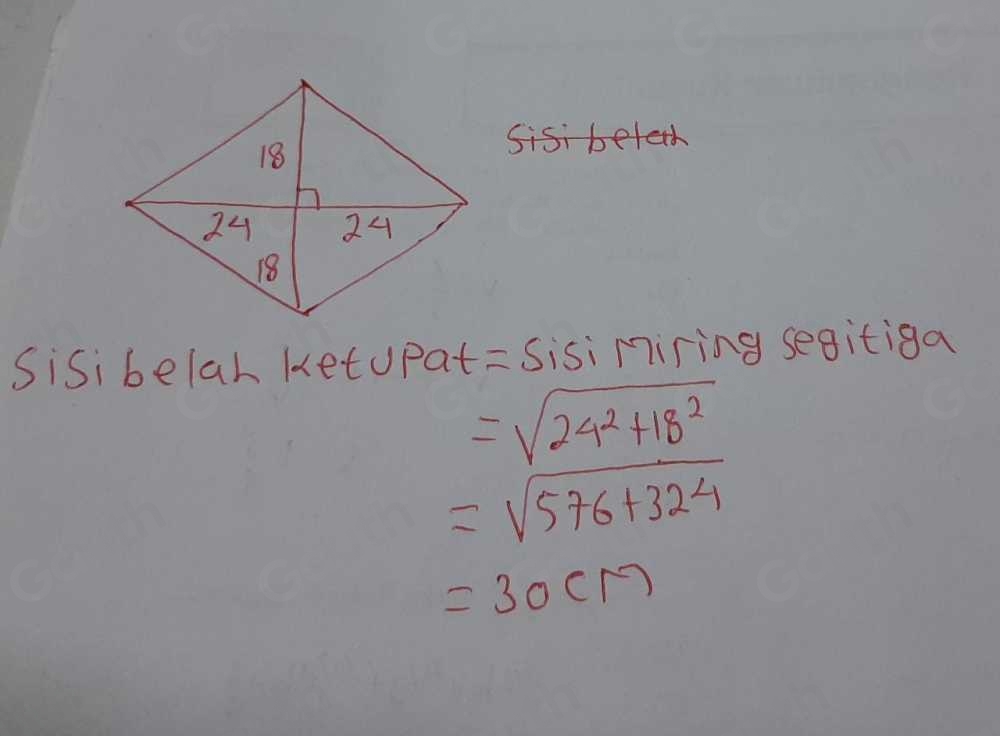 18
sisi belah
24 24
18
sisi belah ketupat = sisi miring segitiga
= √24² + 18²
= √576 + 324
= 30 cm